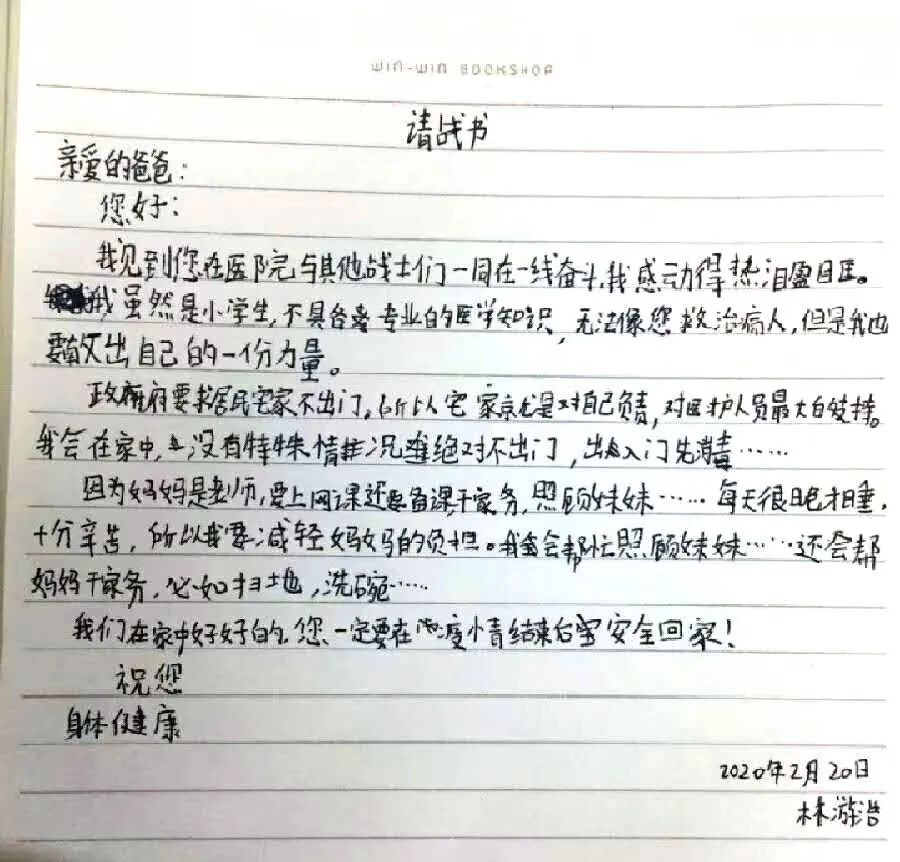 WIN-WIN BOOKSHOP
请战书
亲爱的爸爸:
您好:
我见到您在医院与其他战士们一同在一线奋斗,我感动得热泪盈眶。
我虽然是小学生,不具备专业的医学知识,无法像您救治病人,但是我也
要献出自己的一份力量。
政府要求居民宅家不出门,所以宅家就是对自己负责,对医护人员最大的支持。
我会在家中,没有特殊情况绝对不出门,出入门先消毒……
因为妈妈是老师,要上网课还要备课干家务,照顾妹妹……每天很晚才睡,
十分辛苦,所以我要减轻妈妈的负担。我会帮忙照顾妹妹……还会帮
妈妈干家务,比如扫地,洗碗……
我们在家中好好的,您一定要在疫情结束后安全回家!
祝您
身体健康
2020年2月20日
林游浩